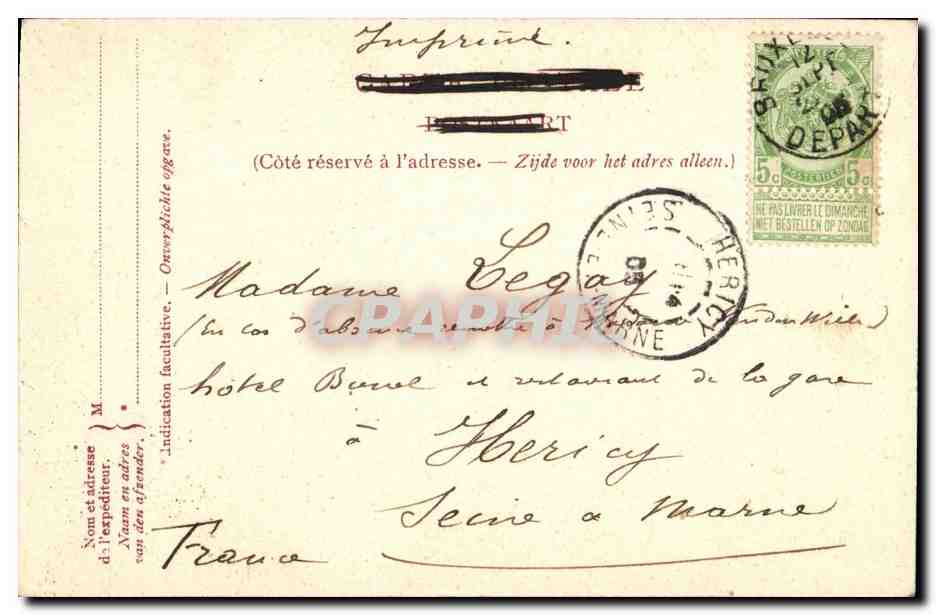 Imprimé.
POSTKAART
(Côté réservé à l'adresse. — Zijde voor het adres alleen.)
BRUXE
12
SEPT
05
DEPART
5c POSTERIJEN 5c
NE PAS LIVRER LE DIMANCHE
NIET BESTELLEN OP ZONDAG
HERICY
SEINE ET MARNE
05
Madame Legay
(En cas d'absence remettre à Van den Wiele)
CPARHIC
hôtel Bunel et restaurant de la gare
à
Hericy
Seine & Marne
France
M
*
Nom et adresse
de l'expéditeur.
Naam en adres
van den afzender.
* Indication facultative. — Onverplichte opgave.